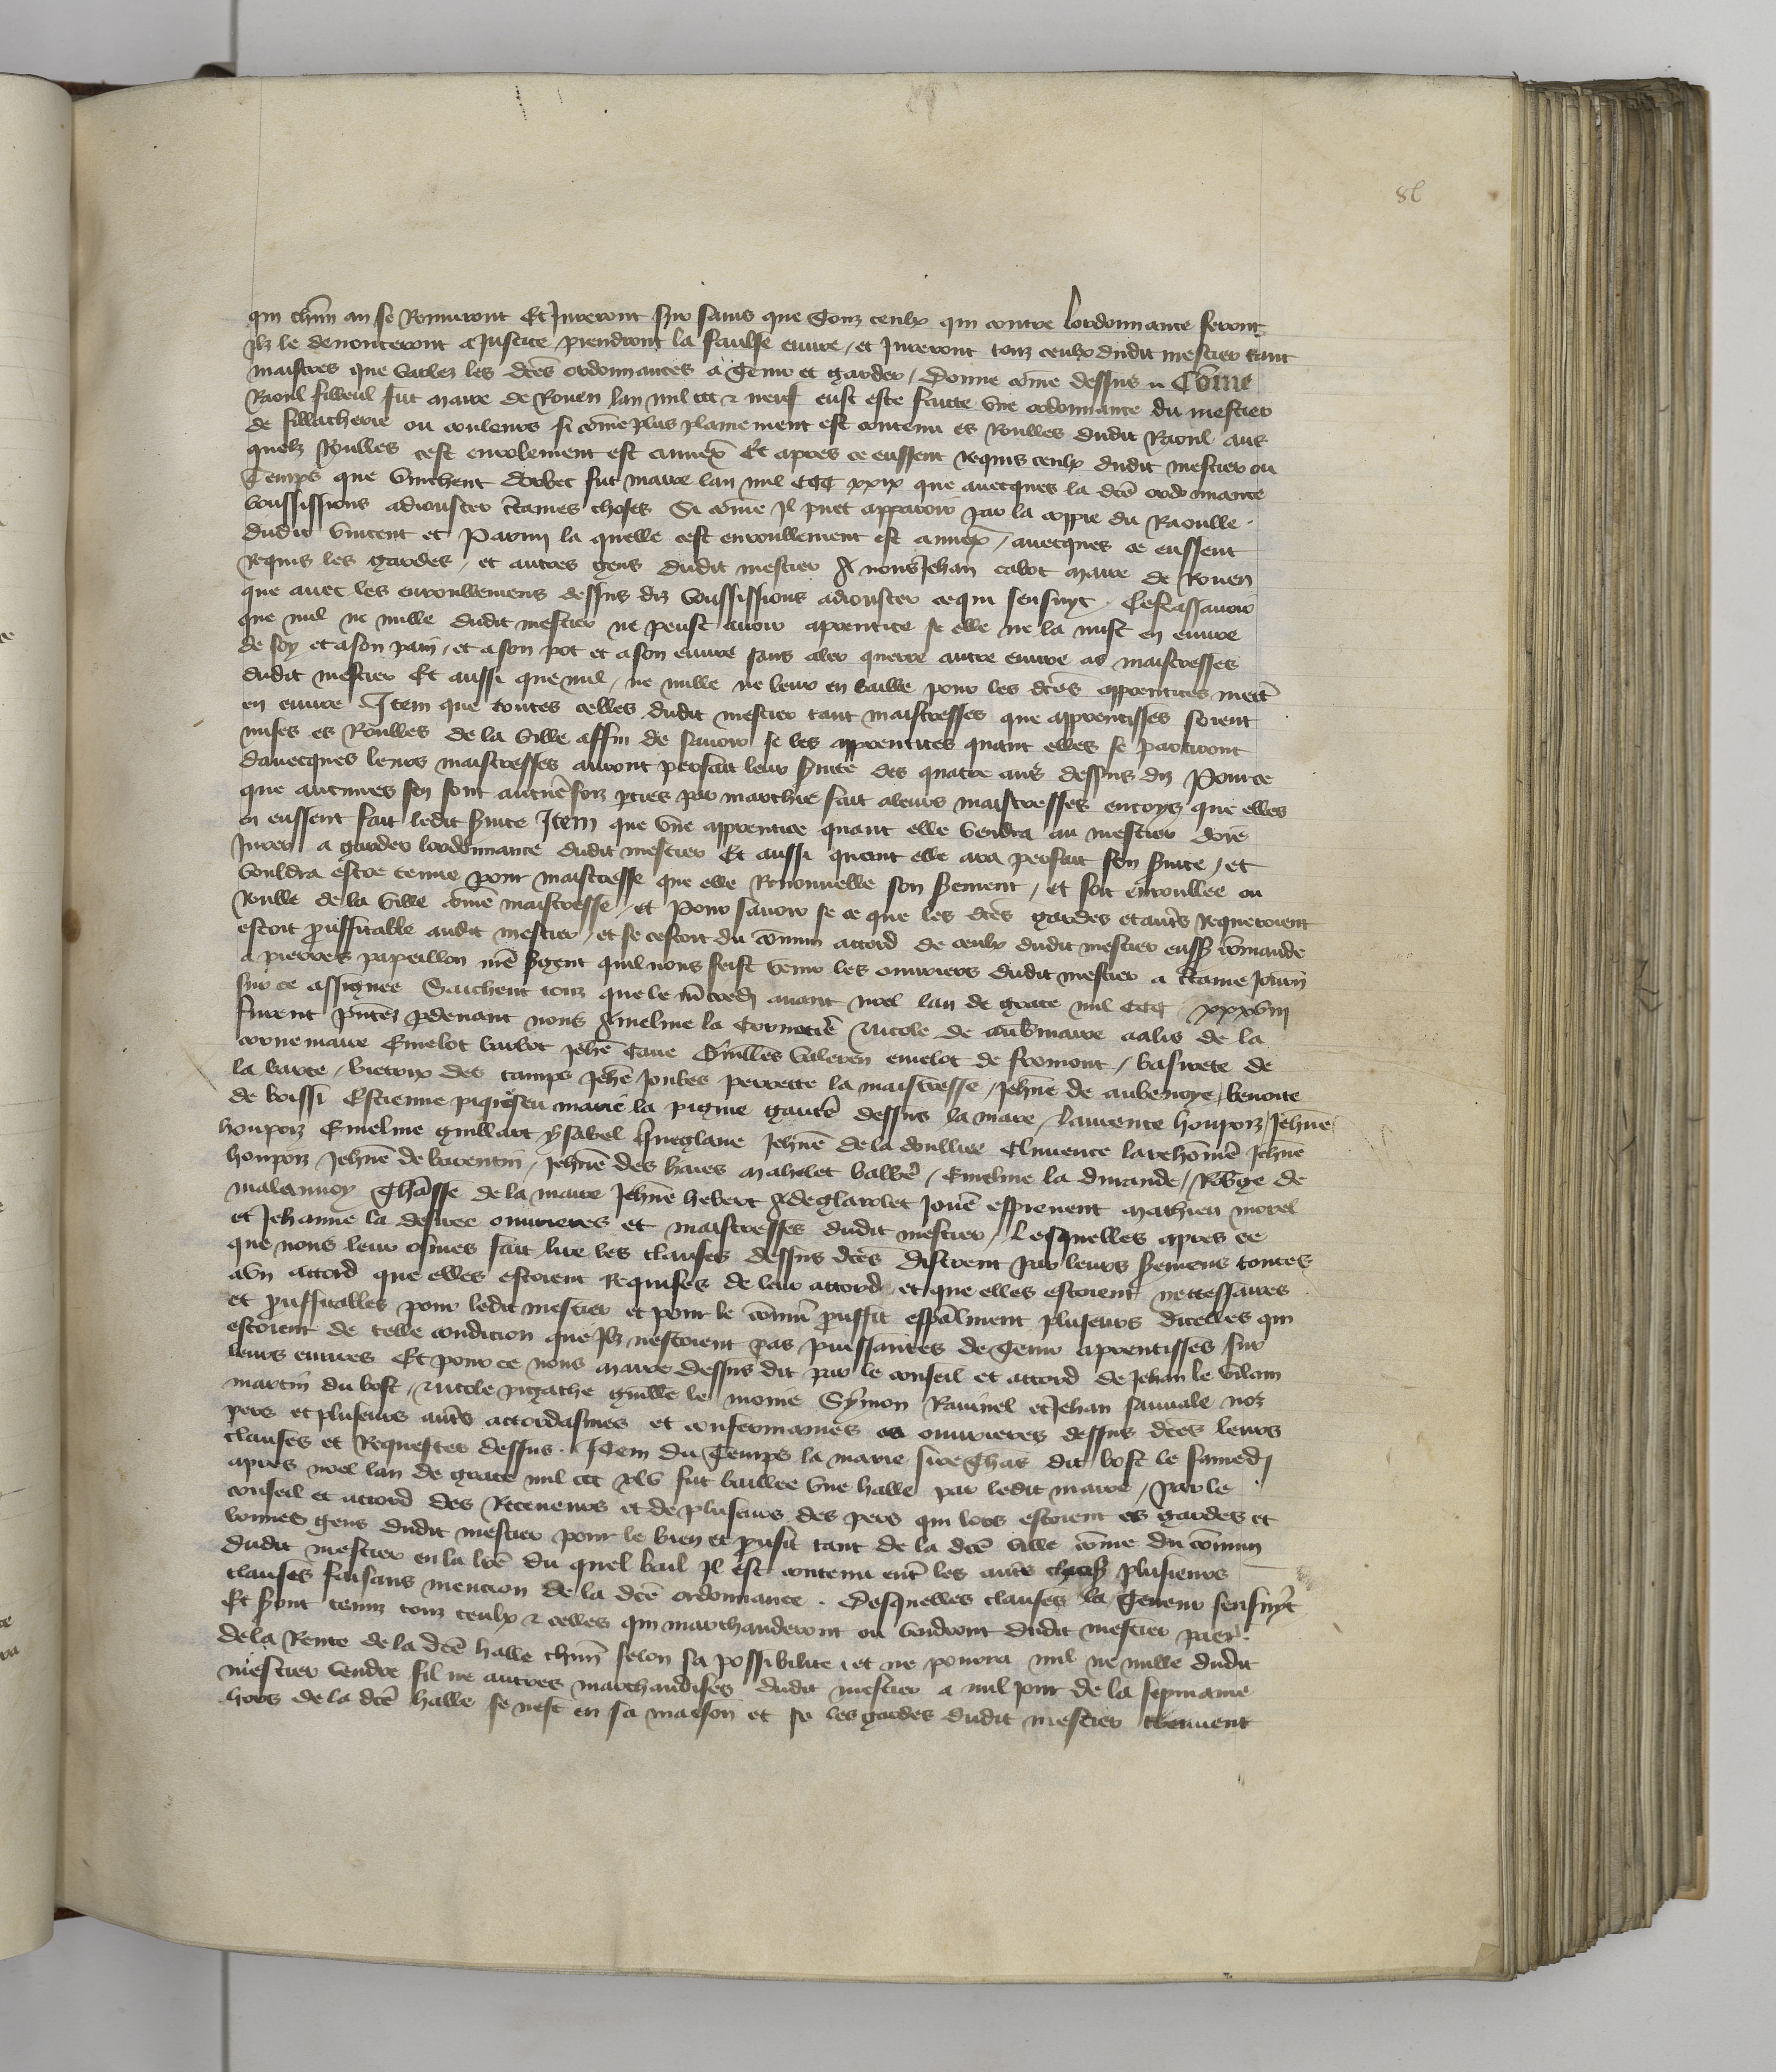 86
qui chũn an se Remueront Et Jureront sur sains que Touz ceulx qui contre lordonnance seront
Ilz le denonceront a Justice prendront la faulse euure / et Jureront touz ceulx dudit mestier tant
maistres que vallez les dc̃es ordonnances a Tenir et garder / Donne cõme dessus // Cõme
Raoul filleul fut maire de Rouen lan mil ccc & neuf eust este faicte vne ordonnance du mestier
de fillacherie ou couleurs si cõme plus plainement est contenu es Roulles dudit Raoul aus
quelz Roulles cest enrolement est annex̃ Et apres ce eussent requis ceulx dudit mestier ou
Temps que vinchent dorbec fut maire lan mil CCC xxix que auecques la dc̃e ordonnance
voulsissions adiouster c̃taines choses Si cõme Il puet apparoir par la coppie du Raoulle
dudit vincent et Parmy la quelle cest enroullement est annex̃ / auecques ce eussent
requis les gardes / et autres gens dudit mestier A nous Jehan cabot maire de Rouen
que auec les enroullemens dessus diz voulsissions adiouster ce qui sensuyt . Cest assauoir
que nul ne nulle dudit mestier ne peust auoir aprentice se elle ne la mist en euure
de soy et a son pain / et a son pot et a son euure sans aler querre autre euure as maistresses
dudit mestier Et aussi que nul / ne nulle ne leur en baille pour les dc̃es apprentices mectr̃
en euure Item que toutes celles dudit mestier tant maistresses que apprentisses soient
mises es Roulles de la ville affin de sauoir se les apprentices quant elles se partiront
dauecques leurs maistresses auront perfait leur s̃uice des quatre ans dessus diz Pour ce
que aucunes sen sont aucuñefoiz p̃ties par marchie fait a leurs maistresses encoys que elles
en eussent fait ledit s̃uice Item que vne apprentice quant elle vendra au mestier doie
Jurer a garder lordonnance dudit mestier Et aussi quant elle ara perfait son s̃uice / et
vouldra estre tenue pour maistresse que elle Renouuelle son s̃ement / et soit enroullee ou
Roulle de la ville cõme maistresse / et Pour sauoir se ce que les dc̃es gardes et aut̃s requeroient
estoit p̃uffitable audit mestier / et se cestoit du cõmun accord de ceulx dudit mestier eussy cõmande
a pierres papeillon nr̃e s̃gent quil nous feist venir les ouurieres dudit mestier a c̃taine Journ̄
sur ce assignee Saichent touz que le m̃credi auant noel lan de grace mil CCC xxxviii
furent p̃ntez p̃deuant nous Ameline la Cornetie Nicole de aub̃maire aalis de la
cornemaire Emelot barbot Jeh̃e Caue G̃uilles valeren emelot de fromont / basirete de
la barre / bietrix des camps Jeh̃e Joubes perrette la maistresse / Jeh̃ne de aubenoye / benoite
de boissi Estienne marie la pigine gautr̃ dessus la mare / laurence houpoiz / Jeh̃ne
houpoiz Emeline guillart ysabel Jeh̃ne de la doulliee Climence larehõme Jeh̃ne
houpoiz / Jeh̃ne de barentin / Jeh̃ne des haies Mahelet / Emeline la / de
malaunoy de la mare Jeh̃ne hebert Jouẽ Mathieu morel
et Jehanne la desiree ouurieres et maistresses dudit mestier / lesquelles apres ce
que nous leur osmes fait lire les clauses dessus dc̃es Distrent par leurs s̃emens toutes
a vn accord que elles estoient requises de leur accord / et que elles estoient neccessaires
et p̃uffitalles pour ledit mestier et pour le cõmũ p̃uffit esp̃alment pluseurs dicelles qui
estoient de telle condicion que Ilz nestoient pas puissantes de Tenir aprentisses sur
leurs euures Et pour ce nous maire dessus dit par le conseil et accord de Jehan le vilain
martin du bosc / Nicole pigache guill̃e le moine Symon Rauinel et Jehan sauuale noz
pers et pluseurs aut̃s accordasmes et confermames as ouurieres dessus dc̃es leurs
clauses et Requestes dessus . Item du Temps la mairie sire du bosc le samedi
apres noel lan de grace mil ccc xlv fut baillee vne halle par ledit maire / Par le
conseil et accord des Receueurs et de pluseurs des pers qui lors estoient es gardes et
bonnes gens dudit mestier pour le bien et p̃ufit tant de la dc̃e ville cõme du cõmun
dudit mestier en la lr̃e du quel bail Il est contenu entr̃ les autr̃s plusieurs
clauses faisans mencion de la dc̃e ordonnance . Desquelles clauses la Teneur sensuyt
Et s̃ont tenuz touz ceulx & celles qui marchanderont ou vendront dudit mestier paer
de la Rente de la dc̃e halle chũn selon sa possibilite / et ne pourra nul ne nulle dudit
mestier vendre fil ne autres marchandises dudit mestier a nul Jour de la sepmaine
hors de la dc̃e halle se nest en sa maison et se les gardes dudit mestier treuuent